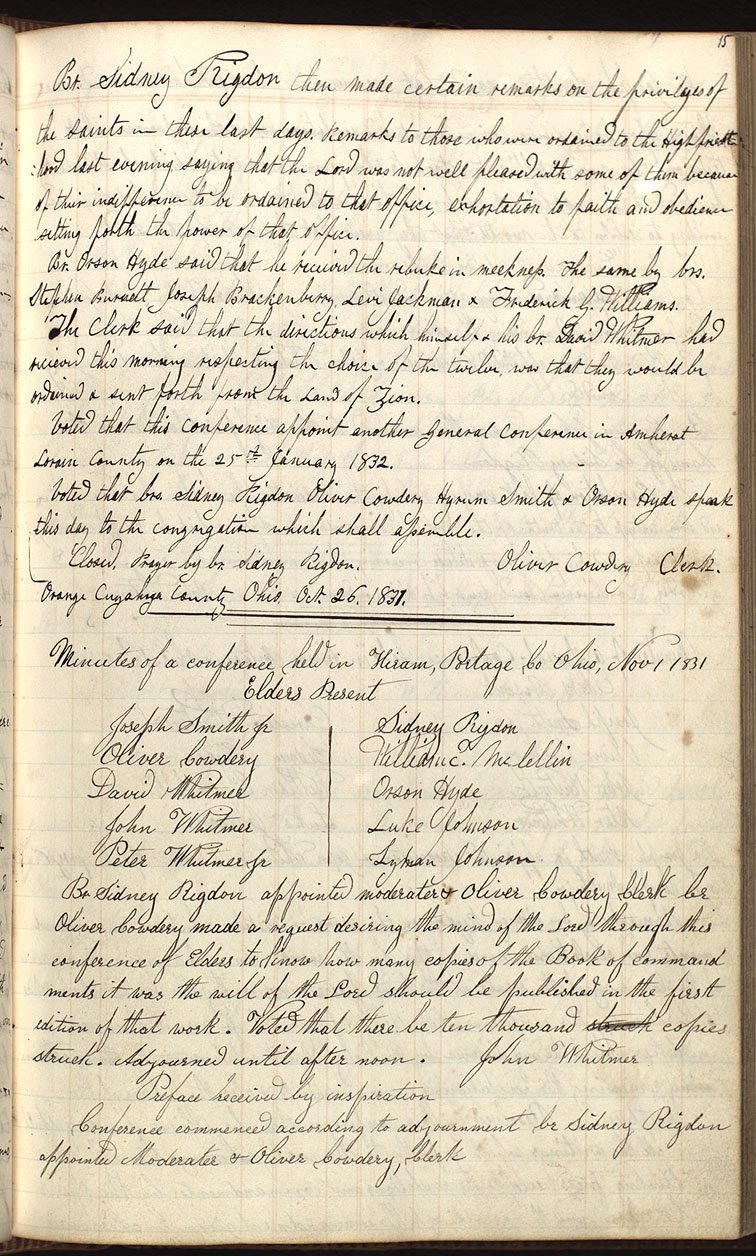 15
Br. Sidney Rigdon then made certain remarks on the privileges of
the saints in these last days. Remarks to those who were ordained to the High priest-
:hood last evening saying that the Lord was not well pleased with some of them because
of their indifference to be ordained to that office, exhortation to faith and obedience
setting forth the power of that office.
Br. Orson Hyde said that he received the rebuke in meekness. The same by brs.
Stephen Burnett, Joseph Brackenberry, Levi Jackman & Frederick G. Williams.
The Clerk said that the directions which himself & his br. David Whitmer had
recieved this morning respecting the choice of the twelve, was that they would be
ordained & sent forth from the Land of Zion.
Voted that this conference appoint another General Conference in Amherst
Lorain County on the 25th January 1832.
Voted that brs. Sidney Rigdon Oliver Cowdery Hyrum Smith & Orson Hyde speak
this day to the congregation which shall assemble.
Closed. Prayer by br. Sidney Rigdon. Oliver Cowdry Clerk.
Orange Cuyahoga County Ohio, Oct. 26. 1831.
Minutes of a conference held in Hiram, Portage Co Ohio, Nov 1 1831
Elders Present
Joseph Smith jr Sidney Rigdon
Oliver Cowdery William C. Mc.lellin
David Whitmer Orson Hyde
John Whitmer Luke Johnson
Peter Whitmer jr Lyman Johnson.
Br. Sidney Rigdon appointed moderater & Oliver Cowdery Clerk br
Oliver Cowdery made a request desiring the mind of the Lord through this
conference of Elders to know how many copies of the Book of command
ments it was the will of the Lord should be published in the first
edition of that work. Voted that there be ten thousand struck copies
struck. Adjourned until after noon. John Whitmer
Preface received by inspiration
Conference commenced according to adjournment br Sidney Rigdon
appointed Moderater & Oliver Cowdery, Clerk